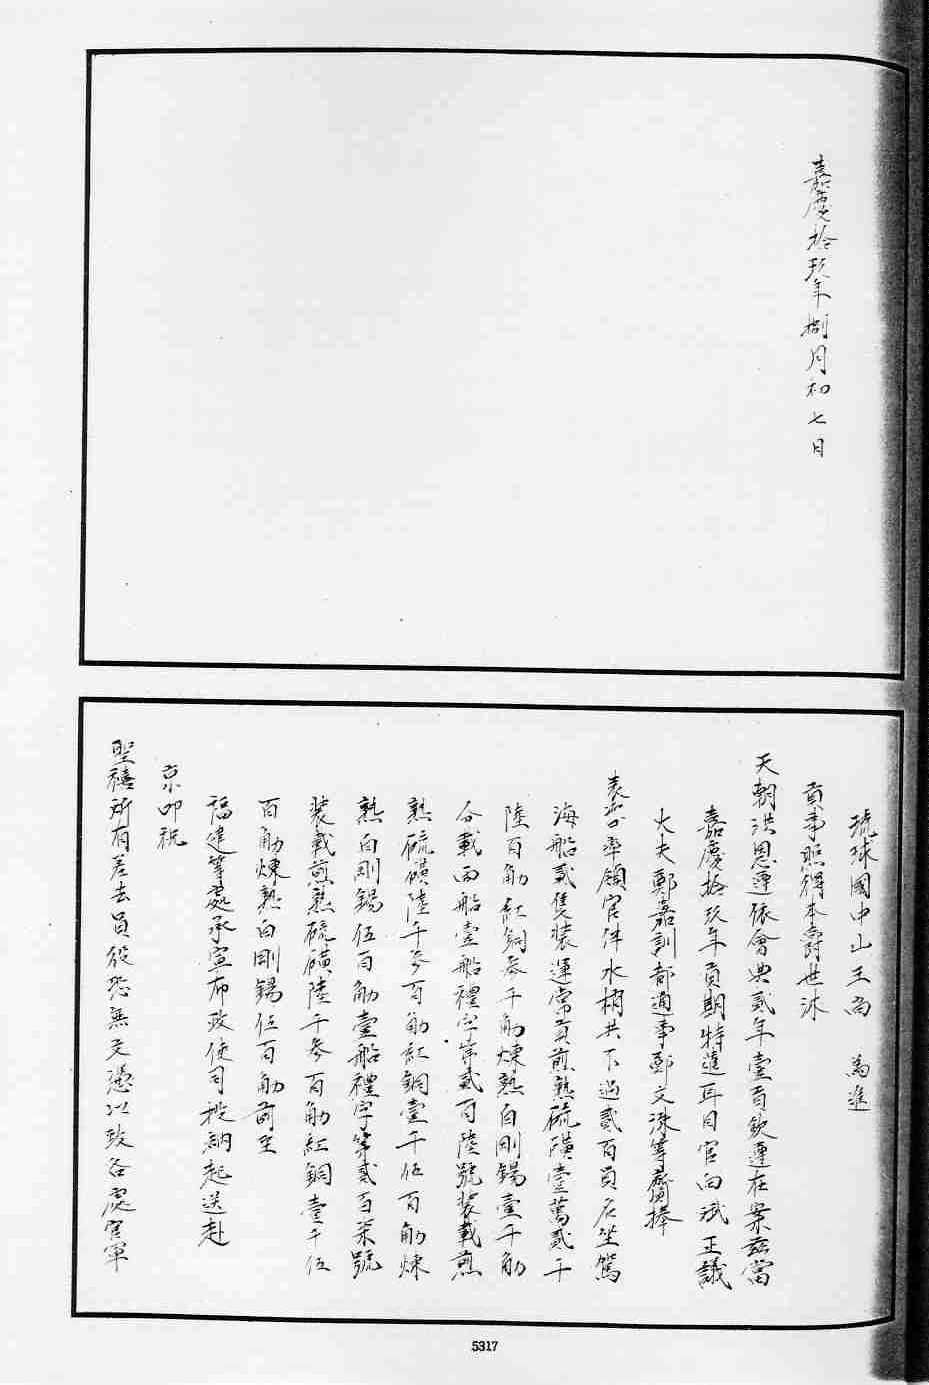 嘉慶拾玖年捌月初七日
琉球國中山王尚 為進
貢事照得本爵世沐
天朝洪恩遵依會典貳年壹貢欽遵在案茲當
嘉慶拾玖年貢期特遣耳目官向斌正議
大夫鄭嘉訓都通事鄭文洙等齎捧
表咨率領官伴水梢共下過貳百員名坐駕
海船貳隻裝運常貢煎熟硫磺壹萬貳千
陸百觔紅銅參千觔煉熟白剛錫壹千觔
分載兩船壹船禮字第貳百陸號裝載煎
熟硫磺陸千參百觔紅銅壹千伍百觔煉
熟白剛錫伍百觔壹船禮字第貳百柒號
裝載煎熟硫磺陸千參百觔紅銅壹千伍
百觔煉熟白剛錫伍百觔前至
福建等處承宣布政使司投納起送赴
京叩祝
聖禧所有差去員役恐無文憑以致各處官軍
5317